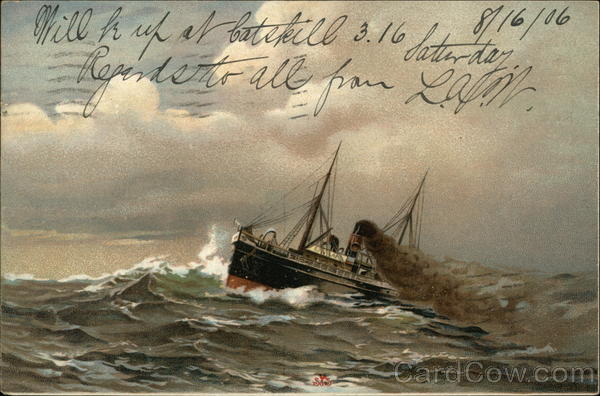 8/16/06
Will be up at Catskill 3.16 Saturday.
Regards to all from L.A.W.
CardCow.com